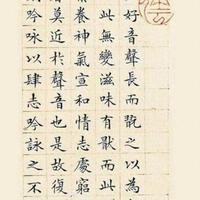 好音聲長而翫之以為
此無變滋味有猒而此
養神氣宣和情志處窮
莫近於聲音也是故復
吟詠以肆志吟詠之不